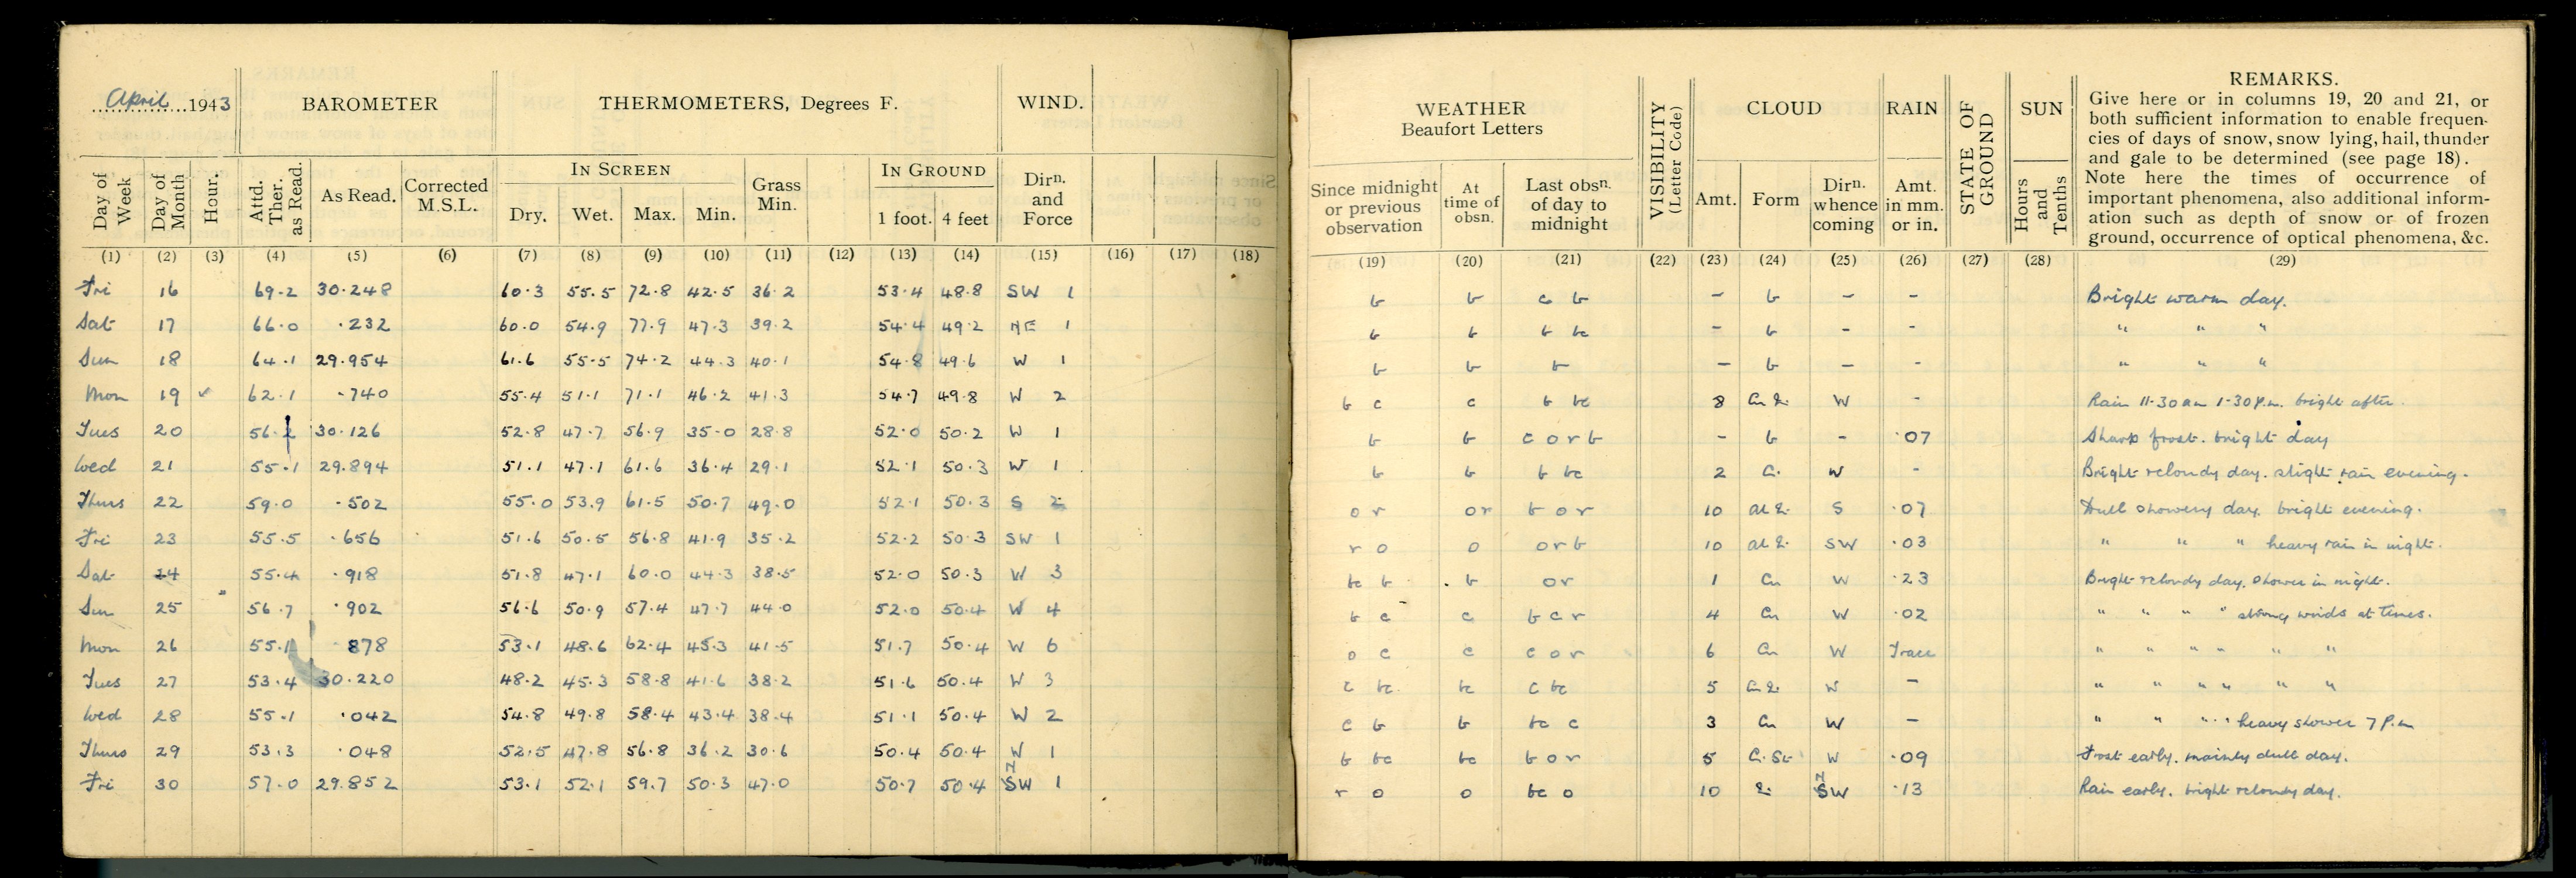 April 1943 BAROMETER THERMOMETERS, Degrees F. WIND.
Day of Week Day of Month Hour. Attd. Ther. as Read. As Read. Corrected M.S.L. IN SCREEN Dry. Wet. Max. Min. Grass Min. IN GROUND 1 foot. 4 feet Dirn. and Force
(1) (2) (3) (4) (5) (6) (7) (8) (9) (10) (11) (12) (13) (14) (15) (16) (17) (18)
Fri 16 69.2 30.248 60.3 55.5 72.8 42.5 36.2 53.4 48.8 SW 1
Sat 17 66.0 .232 60.0 54.9 77.9 47.3 39.2 54.4 49.2 NE 1
Sun 18 64.1 29.954 61.6 55.5 74.2 44.3 40.1 54.8 49.6 W 1
Mon 19 ✓ 62.1 .740 55.4 51.1 71.1 46.2 41.3 54.7 49.8 W 2
Tues 20 56.2 30.126 52.8 47.7 56.9 35.0 28.8 52.0 50.2 W 1
Wed 21 55.1 29.894 51.1 47.1 61.6 36.4 29.1 52.1 50.3 W 1
Thurs 22 59.0 .502 55.0 53.9 61.5 50.7 49.0 52.1 50.3 S 2
Fri 23 55.5 .656 51.6 50.5 56.8 41.9 35.2 52.2 50.3 SW 1
Sat 24 55.4 .918 51.8 47.1 60.0 44.3 38.5 52.0 50.3 W 3
Sun 25 56.7 .902 56.6 50.9 57.4 47.7 44.0 52.0 50.4 W 4
Mon 26 55.1 878 53.1 48.6 62.4 45.3 41.5 51.7 50.4 W 6
Tues 27 53.4 30.220 48.2 45.3 58.8 41.6 38.2 51.6 50.4 W 3
Wed 28 55.1 .042 54.8 49.8 58.4 43.4 38.4 51.1 50.4 W 2
Thurs 29 53.3 .048 52.5 47.8 56.8 36.2 30.6 50.4 50.4 W 1
Fri 30 57.0 29.852 53.1 52.1 59.7 50.3 47.0 50.7 50.4 NW 1
WEATHER Beaufort Letters VISIBILITY (Letter Code) CLOUD RAIN STATE OF GROUND SUN REMARKS.
Give here or in columns 19, 20 and 21, or
both sufficient information to enable frequen-
cies of days of snow, snow lying, hail, thunder
and gale to be determined (see page 18).
Note here the times of occurrence of
important phenomena, also additional inform-
ation such as depth of snow or of frozen
ground, occurrence of optical phenomena, &c.
Since midnight or previous observation At time of obsn. Last obsn. of day to midnight Amt. Form Dirn. whence coming Amt. in mm. or in. Hours and Tenths
(19) (20) (21) (22) (23) (24) (25) (26) (27) (28) (29)
b b c b - b - - Bright warm day.
b b b bc - b - - " " "
b b b - b - - " " "
b c c b bc 8 W - Rain 11-30 am 1-30 p.m. bright after.
b b c o r b - b - .07 Sharp frost. bright day
b b b bc 2 W - Bright & cloudy day. slight rain evening.
o r o r b o r 10 S .07 Dull showery day. bright evening.
r o o o r b 10 SW .03 " " " heavy rain in night.
bc b b o r 1 Cu W .23 Bright & cloudy day. shower in night.
b c c b c r 4 Cu W .02 " " " " strong winds at times.
o c c c o r 6 Cu W Trace " " " " " "
c bc bc c bc 5 W - " " " " " "
c b b bc c 3 Cu W - " " " " heavy shower 7 p.m
b bc bc b o r 5 C. St. W .09 Frost early. mainly dull day.
r o o bc o 10 NW .13 Rain early. bright & cloudy day.